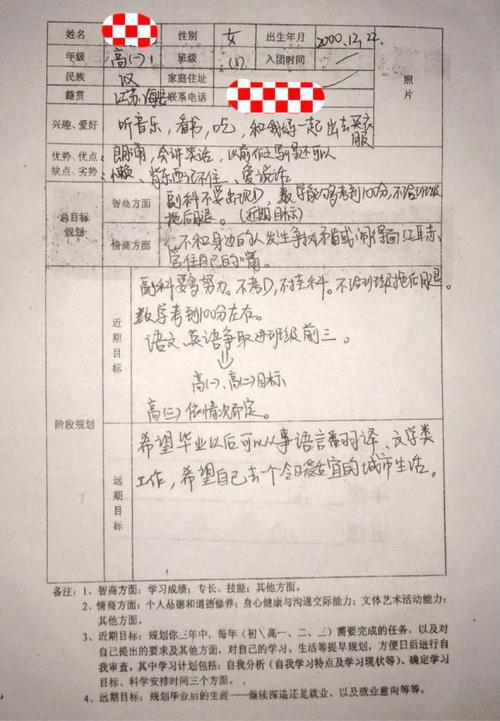 姓名 性别 女 出生年月 2000.12.22
年级 高(一) 班级 (1) 入团时间
民族 汉 家庭住址 照片
籍贯 江苏 海 联系电话
兴趣、爱好 听音乐,看书,吃,和我妈一起出去买衣服
优势、优点: 朗诵,会讲笑话,以前作文写得还可以
缺点、劣势: 懒 背东西记不住、爱说话
总目标规划 智商方面 副科不要出现D,数学能够考到100分,不给班级
拖后腿。(近期目标)
情商方面 不和身边的人发生争执不
管住自己的嘴
阶段规划 近期目标 副科要努力。不考D,不挂科。不给班级拖后腿。
数学考到100分左右。
语文、英语争取进班级前三。
⇓
高(一)、高(二)目标
高(三)依情次而定。
远期目标 希望毕业以后可以从事语言翻译、文学类
工作,希望自己去一个令自己适宜的城市生活。
备注:1、智商方面:学习成绩;专长、技能;其他方面。
2、情商方面:个人品德和道德修养;身心健康与沟通交际能力;文体艺术活动能力;
其他方面。
3、近期目标:规划你三年中,每年(初\高一、二、三)需要完成的任务,以及对
自己提出的要求及其他方面,对自己的学习、生活等提早规划,方便日后进行自
我审查,其中学习计划包括:自我分析(自我学习特点及学习现状等)、确定学习
目标、科学安排时间三个方面。
4、远期目标:规划毕业后的生涯——继续深造还是就业、以及就业意向等等。